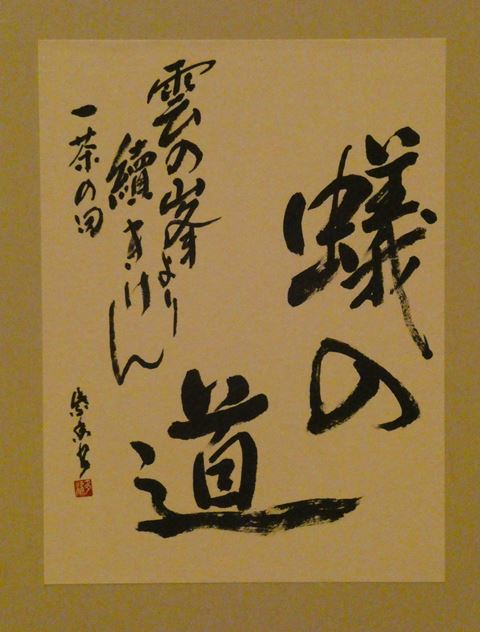 蟻の
道
雲の峯より
續きけん
一茶の句